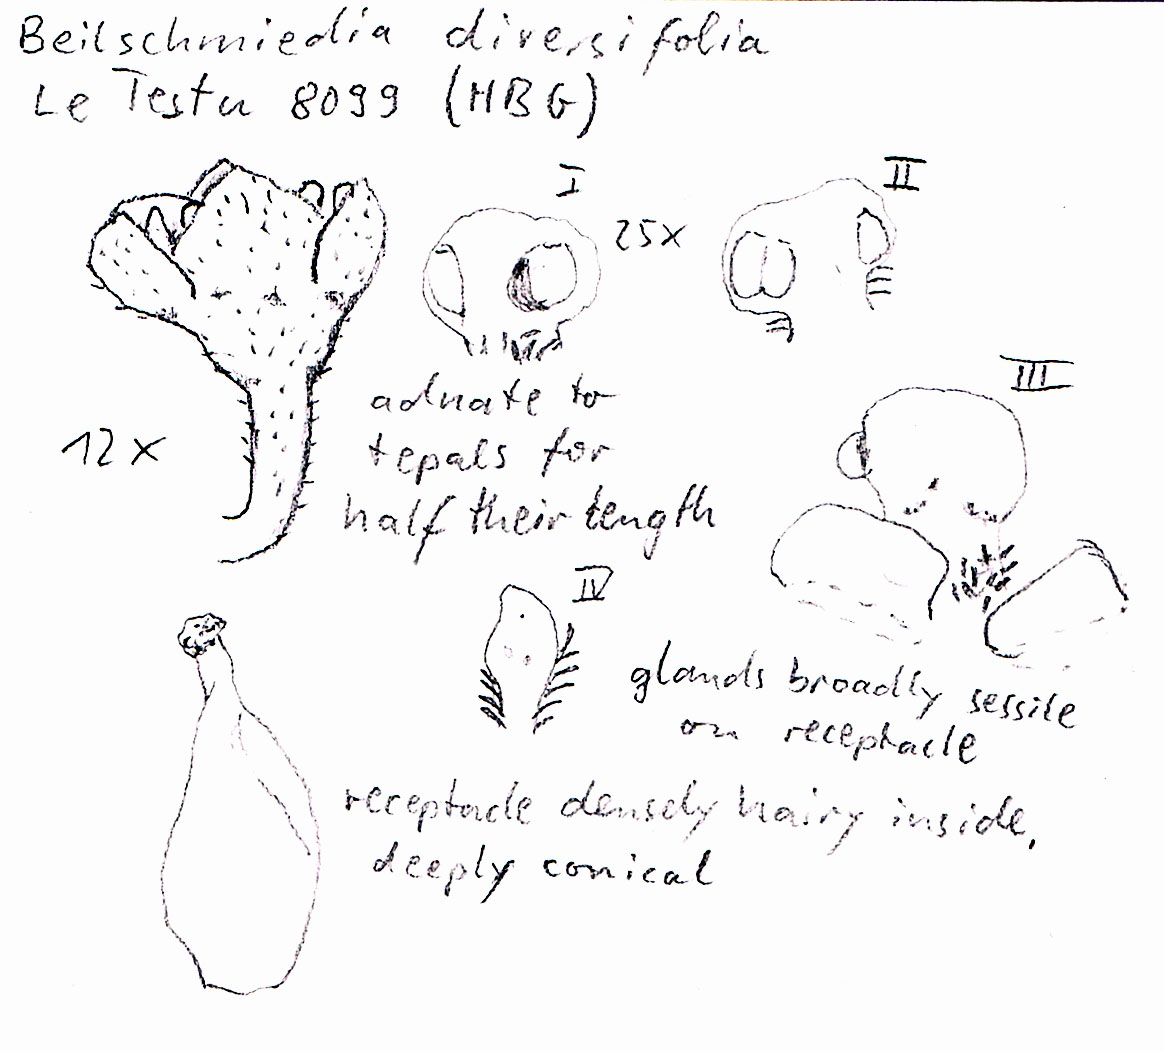 Beilschmiedia diversifolia
Le Testu 8099 (HBG)
I
25x
II
adnate to
tepals for
half their length
12x
III
IV
glands broadly sessile
on receptacle
receptacle densely hairy inside,
deeply conical